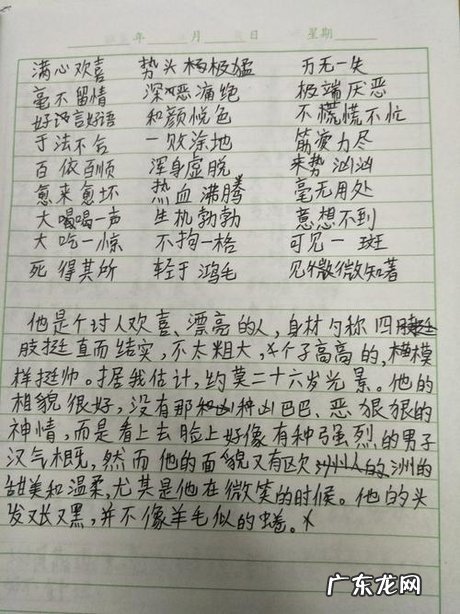 年 月 日 星期
满心欢喜 势头极猛 万无一失
毫不留情 深恶痛绝 极端厌恶
好言好语 和颜悦色 不慌不忙
于法不合 一败涂地 筋疲力尽
百依百顺 浑身虚脱 来势汹汹
愈来愈坏 热血沸腾 毫无用处
大喝一声 生机勃勃 意想不到
大吃一惊 不拘一格 可见一斑
死得其所 轻于鸿毛 见微知著
他是个讨人欢喜、漂亮的人,身材匀称四
肢挺直而结实,不太粗大,个子高高的,模
样挺帅。据我估计,约莫二十六岁光景。他的
相貌很好,没有那种凶巴巴、恶狠狠的
神情,而是看上去脸上好像有种强烈的男子
汉气概,然而他的面貌又有欧洲的
甜美和温柔,尤其是他在微笑的时候。他的头
发又长又黑,并不像羊毛似的卷。
广东龙网